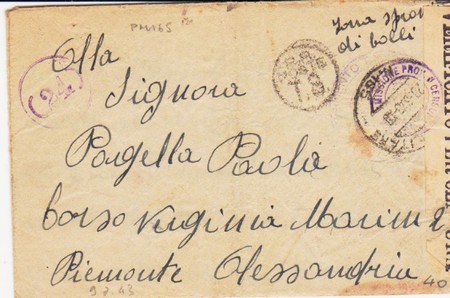 PM165
Zona sprov
di bolli
(24)
Alla
Signora
Pagella Paola
Corso Virginia Marini 2
Piemonte Alessandria
9.7.43
40